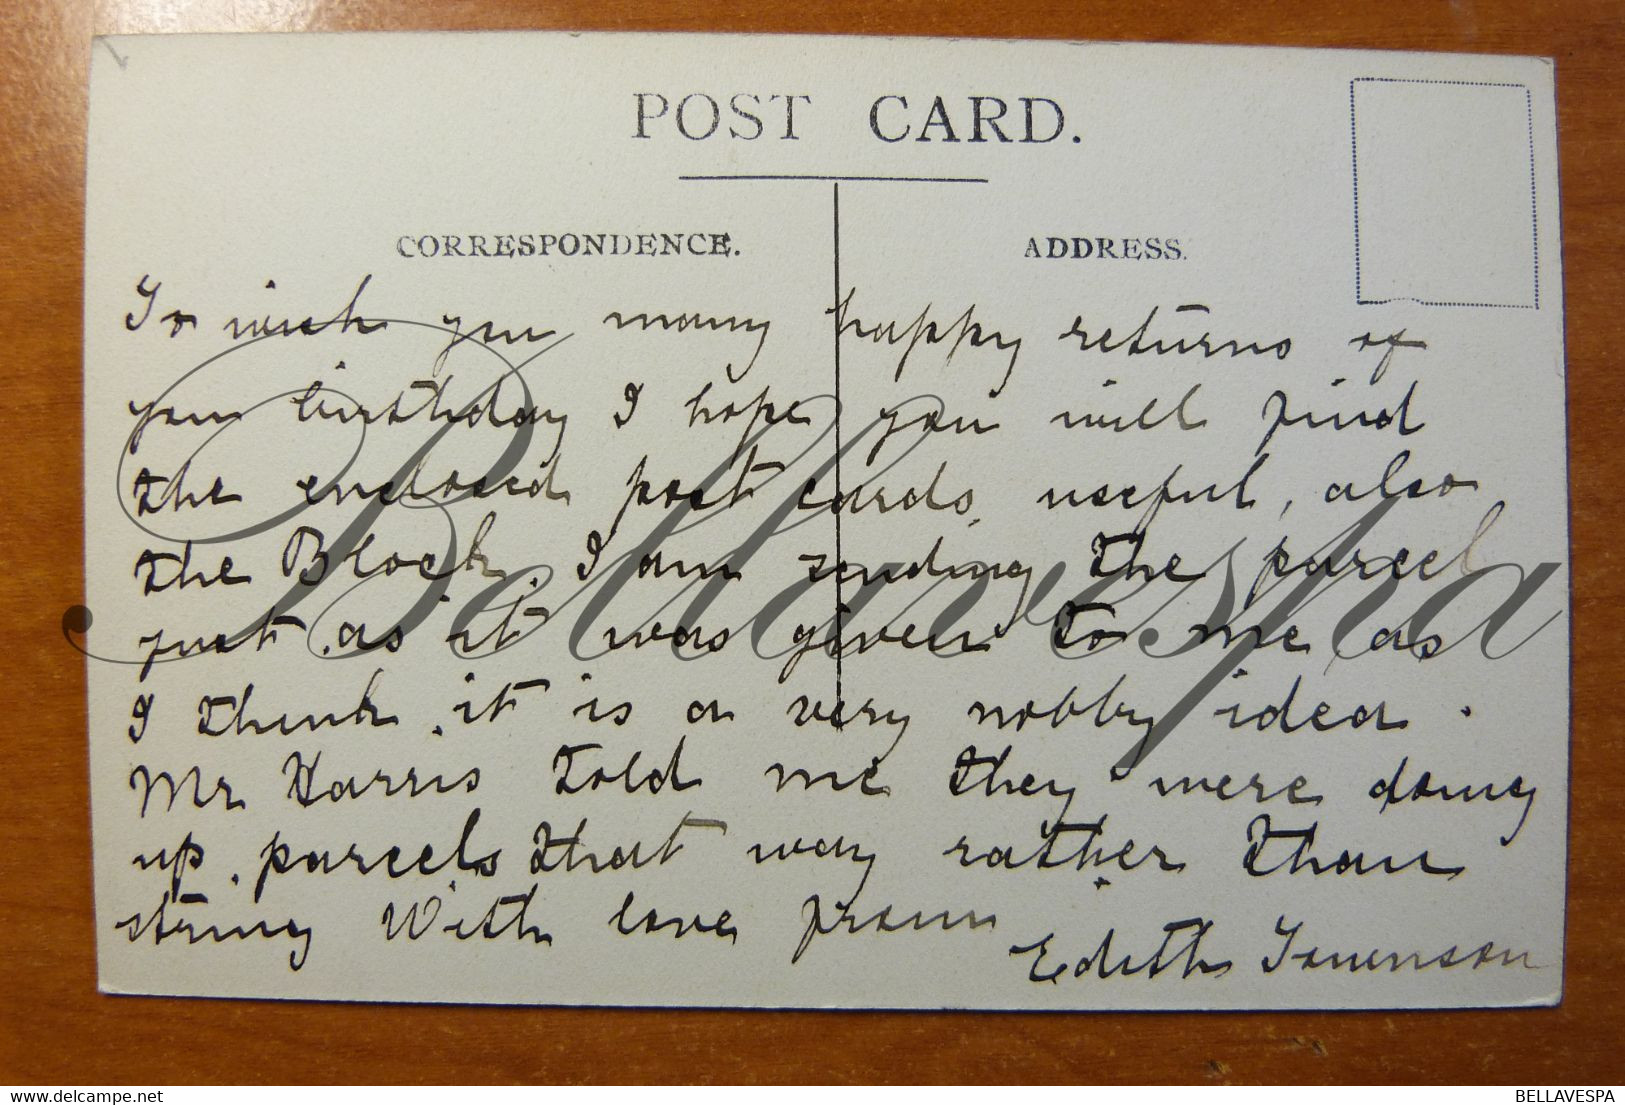 POST CARD.
CORRESPONDENCE.
ADDRESS.
To wish you many happy returns of
your birthday I hope you will find
the enclosed post cards, useful, also
the Block. I am sending the parcel
just as it was given to me as
I think it is a very nobby idea.
Mr Harris told me they were doing
up parcels that way rather than
string With love from
Edith
Bellavespa
www.delcampe.net
BELLAVESPA